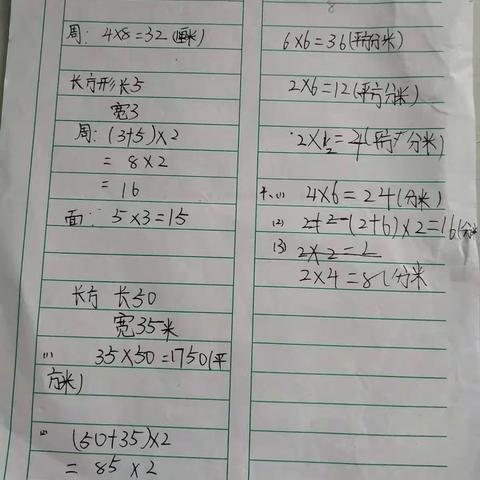 周: 4×8=32(厘米)
长方形长5
宽3
周: (3+5)×2
= 8×2
= 16
面: 5×3=15
长方 长50
宽35米
(1) 35×50=1750(平
方米)
(50+35)×2
= 85×2
8
6×6=36(平方分米)
2×6=12(平方分米)
2×2=4(平方分米)
十、(1) 4×6=24(分米)
(2) (2+6)×2=16(分米
(3) 2×2=
2×4=8(分米